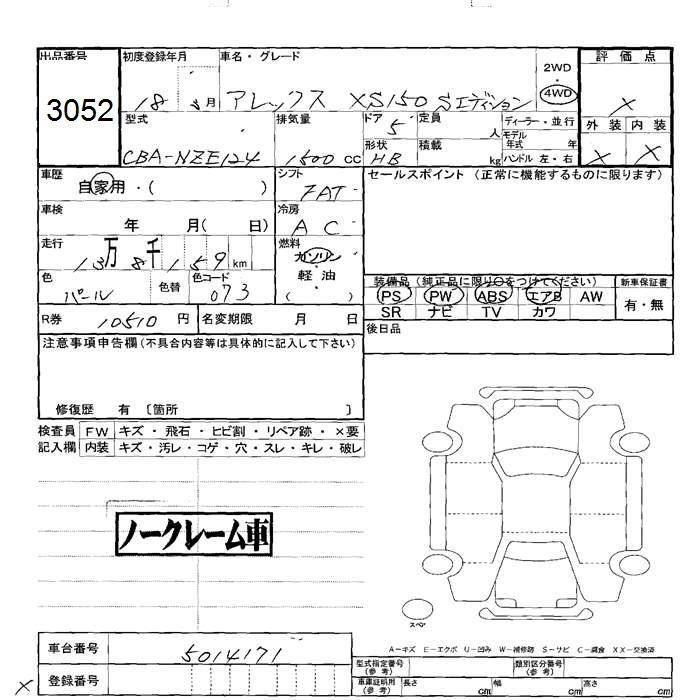 出品番号 初度登録年月 車名・グレード 2WD 評価点
3052 18 月 アレックス XS150 Sエディション 4WD X
型式 排気量 ドア 定員 ディーラー・並行 外装 内装
5 人 モデル年式 年
CBA-NZE124 1500 cc 形状 HB 積載 kg ハンドル 左・右 X X
車歴 自家用・( ) シフト FAT セールスポイント (正常に機能するものに限ります)
車検 年 月( 日) 冷房 AC
走行 13万8千159km 燃料 ガソリン・軽油 ( )
色 パール 色替 色コード 073 装備品(純正品に限り○をつけてください) 新車保証書
PS PW ABS エアB AW 有・無
SR ナビ TV カワ
R券 10510 円 名変期限 月 日 後日品
注意事項申告欄(不具合内容等は具体的に記入して下さい)
修復歴 有 〔箇所 〕
検査員 FW キズ・飛石・ヒビ割・リペア跡・×要
記入欄 内装 キズ・汚レ・コゲ・穴・スレ・キレ・破レ
ノークレーム車
スペア
A-キズ E-エクボ U-凹み W-補修跡 S-サビ C-腐食 XX-交換済
車台番号 5014171 型式指定番号(参考) 類別区分番号(参考)
X 登録番号 車庫証明用(参考) 長さ cm 幅 cm 高さ cm